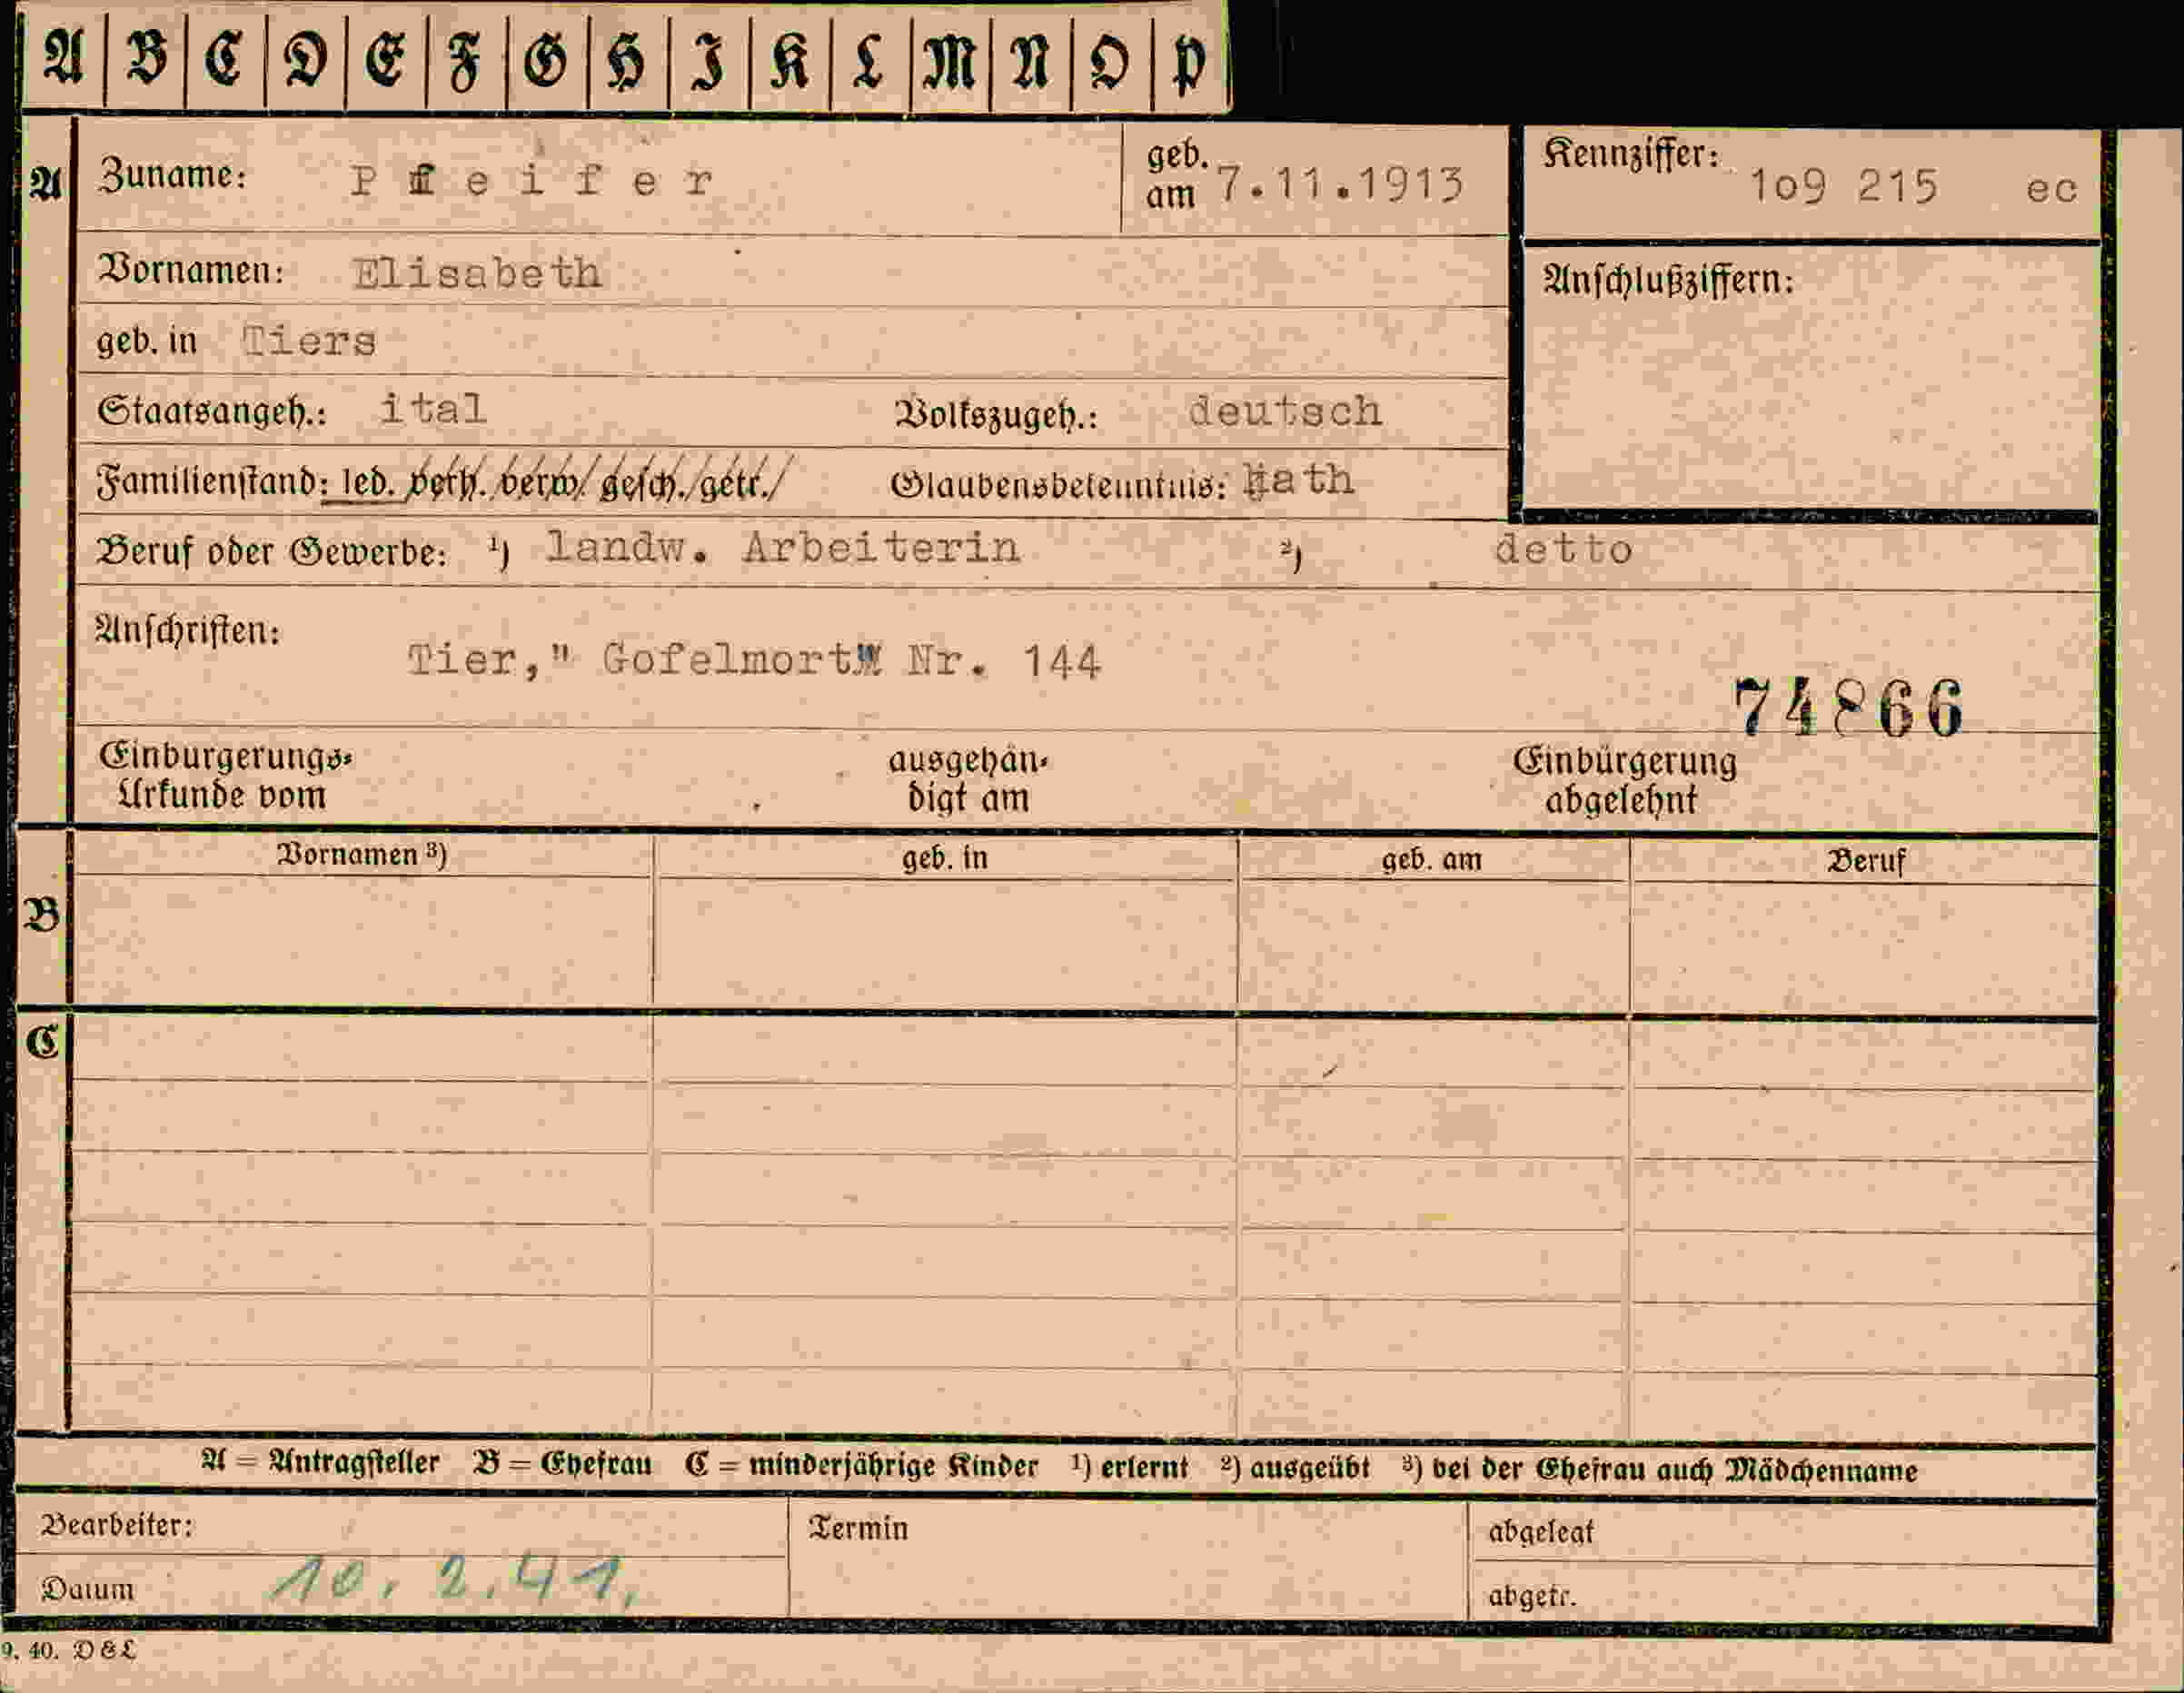 A B C D E F G H I K L M N O P
A Zuname: Pfeifer geb. am 7.11.1913 Kennziffer: 1o9 215 ec
Vornamen: Elisabeth Anschlußziffern:
geb. in Tiers
Staatsangeh.: ital Volkszugeh.: deutsch
Familienstand: led. verh. verw. gesch. getr. Glaubensbekenntnis: kath
Beruf oder Gewerbe: ¹) landw. Arbeiterin ²) detto
Anschriften:
Tier," Gofelmort" Nr. 144
74866
Einbürgerungs- ausgehän- Einbürgerung
Urkunde vom digt am abgelehnt
Vornamen ³) geb. in geb. am Beruf
B
C
A = Antragsteller B = Ehefrau C = minderjährige Kinder ¹) erlernt ²) ausgeübt ³) bei der Ehefrau auch Mädchenname
Bearbeiter: Termin abgelegt
Datum 10. 2. 41. abgetr.
9. 40. D & L